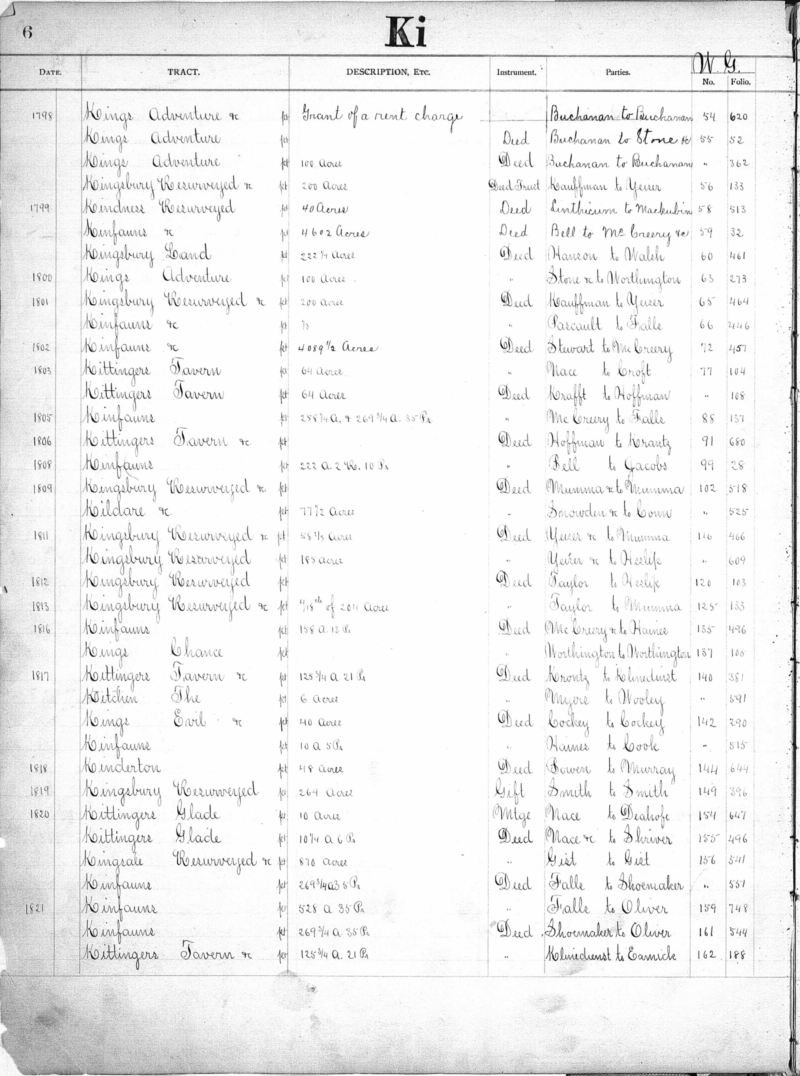 6
Ki
W. G.
DATE. TRACT. DESCRIPTION, ETC. Instrument. Parties. No. Folio.
1798 Kings Adventure &c pt Grant of a rent charge Buchanan to Buchanan 54 620
Kings Adventure pt Deed Buchanan to Stone &c 55 52
Kings Adventure pt 100 Acres Deed Buchanan to Buchanan " 362
Kingsbury Resurveyed &c pt 200 Acres Deed Trust Kauffman to Yeiser 56 133
1799 Kindness Resurveyed pt 40 Acres Deed Linthicum to Mackubin 58 513
Kinfauns &c pt 4602 Acres Deed Bell to McCreery &c 59 32
Kingsbury Land pt Acres Deed Hanson to Walsh 60 461
1800 Kings Adventure pt 100 Acres " Stone &c to Worthington 63 273
1801 Kingsbury Resurveyed &c pt 200 Acres Deed Kauffman to Yeiser 65 464
Kinfauns &c pt " Pascault to Falls 66 446
1802 Kinfauns &c pt 4089 1/2 Acres Deed Stewart to McCreery 72 457
1803 Kittingers Tavern pt 64 Acres " Nace to Croft 77 104
Kittingers Tavern pt 64 Acres Deed Krafft to Hoffman " 108
1805 Kinfauns pt 258 1/4 A. & 269 3/4 A. 35 Ps " McCreery to Falls 88 137
1806 Kittingers Tavern &c pt Deed Hoffman to Krantz 91 680
1808 Kinfauns pt 222 A. 2 Ro. 10 Ps " Fell to Jacobs 99 28
1809 Kingsbury Resurveyed &c pt Deed Mumma &c to Mumma 102 518
Kildare &c pt 77 1/2 Acres " Snowden &c to Conn " 525
1811 Kingsbury Resurveyed &c pt Acres Deed Yeiser &c to Mumma 116 466
Kingsbury Resurveyed pt 185 Acres " Yeiser &c to Heslip " 609
1812 Kingsbury Resurveyed pt Deed Taylor to Heslip 120 103
1813 Kingsbury Resurveyed &c pt of Acres " Taylor to Mumma 125 133
1816 Kinfauns pt 158 A. 13 Ps Deed McCreery &c to Haines 135 496
Kings Chance pt " Worthington to Worthington 137 105
1817 Kittingers Tavern &c pt 125 3/4 A 21 Ps Deed Krontz to Klinedinst 140 381
Kitchen The pt 6 Acres " Myers to Wooley " 591
Kings Evil &c pt 40 Acres Deed Cockey to Cockey 142 290
Kinfauns pt 10 A 5 Ps " Haines to Cook " 515
1818 Kinderton pt 48 Acres Deed Bowen to Murray 144 644
1819 Kingsbury Resurveyed pt 264 Acres Gift Smith to Smith 149 396
1820 Kittingers Glade pt 10 Acres Mtge Nace to Deahofe 154 647
Kittingers Glade pt 10 1/4 A 6 Ps Deed Nace &c to Shriver 155 496
Kingsale Resurveyed &c pt 870 Acres " Gist to Gist 156 341
Kinfauns pt 269 3/4 A 35 Ps Deed Falls to Shoemaker " 557
1821 Kinfauns pt 528 A 35 Ps " Falls to Oliver 159 748
Kinfauns pt 269 3/4 A. 35 Ps Deed Shoemaker to Oliver 161 544
Kittingers Tavern &c pt 125 3/4 A. 21 Ps " Klinedienst to Eamich 162 188